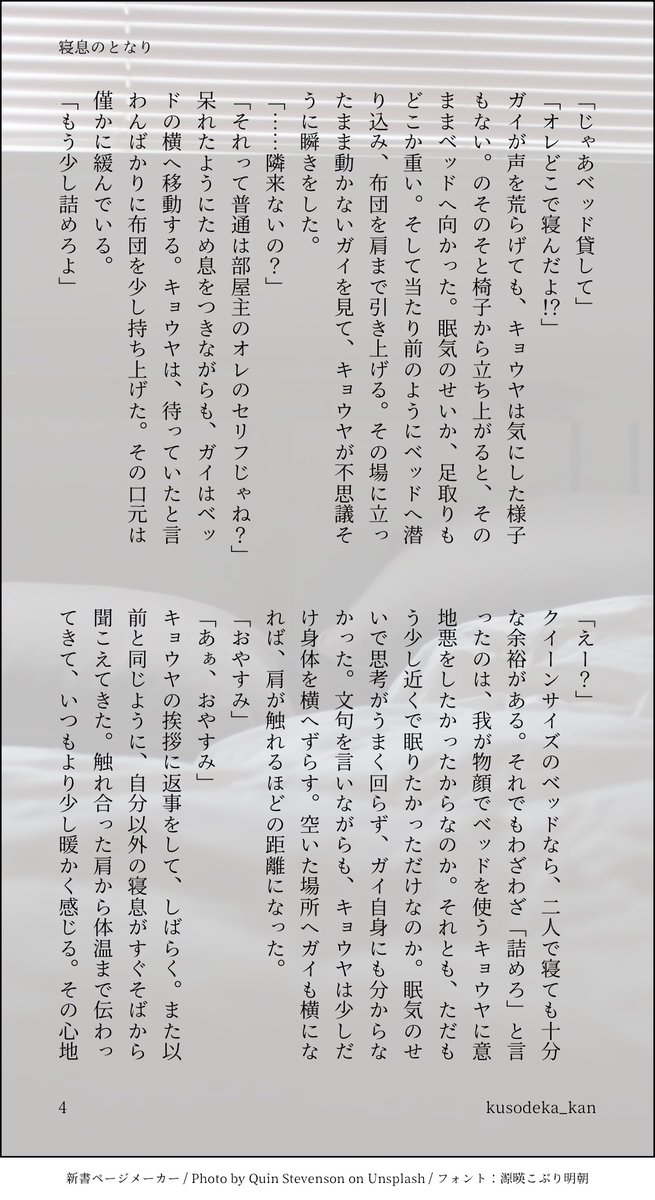 寝息のとなり
「じゃあベッド貸して」
「オレどこで寝んだよ!?」
ガイが声を荒らげても、キョウヤは気にした様子
もない。のそのそと椅子から立ち上がると、その
ままベッドへ向かった。眠気のせいか、足取りも
どこか重い。そして当たり前のようにベッドへ潜
り込み、布団を肩まで引き上げる。その場に立っ
たまま動かないガイを見て、キョウヤが不思議そ
うに瞬きをした。
「……隣来ないの?」
「それって普通は部屋主のオレのセリフじゃね?」
呆れたようにため息をつきながらも、ガイはベッ
ドの横へ移動する。キョウヤは、待っていたと言
わんばかりに布団を少し持ち上げた。その口元は
僅かに緩んでいる。
「もう少し詰めろよ」
「えー?」
クイーンサイズのベッドなら、二人で寝ても十分
な余裕がある。それでもわざわざ「詰めろ」と言
ったのは、我が物顔でベッドを使うキョウヤに意
地悪をしたかったからなのか。それとも、ただも
う少し近くで眠りたかっただけなのか。眠気のせ
いで思考がうまく回らず、ガイ自身にも分からな
かった。文句を言いながらも、キョウヤは少しだ
け身体を横へずらす。空いた場所へガイも横にな
れば、肩が触れるほどの距離になった。
「おやすみ」
「あぁ、おやすみ」
キョウヤの挨拶に返事をして、しばらく。また以
前と同じように、自分以外の寝息がすぐそばから
聞こえてきた。触れ合った肩から体温まで伝わっ
てきて、いつもより少し暖かく感じる。その心地
4
kusodeka_kan
新書ページメーカー / Photo by Quin Stevenson on Unsplash / フォント：源暎こぶり明朝